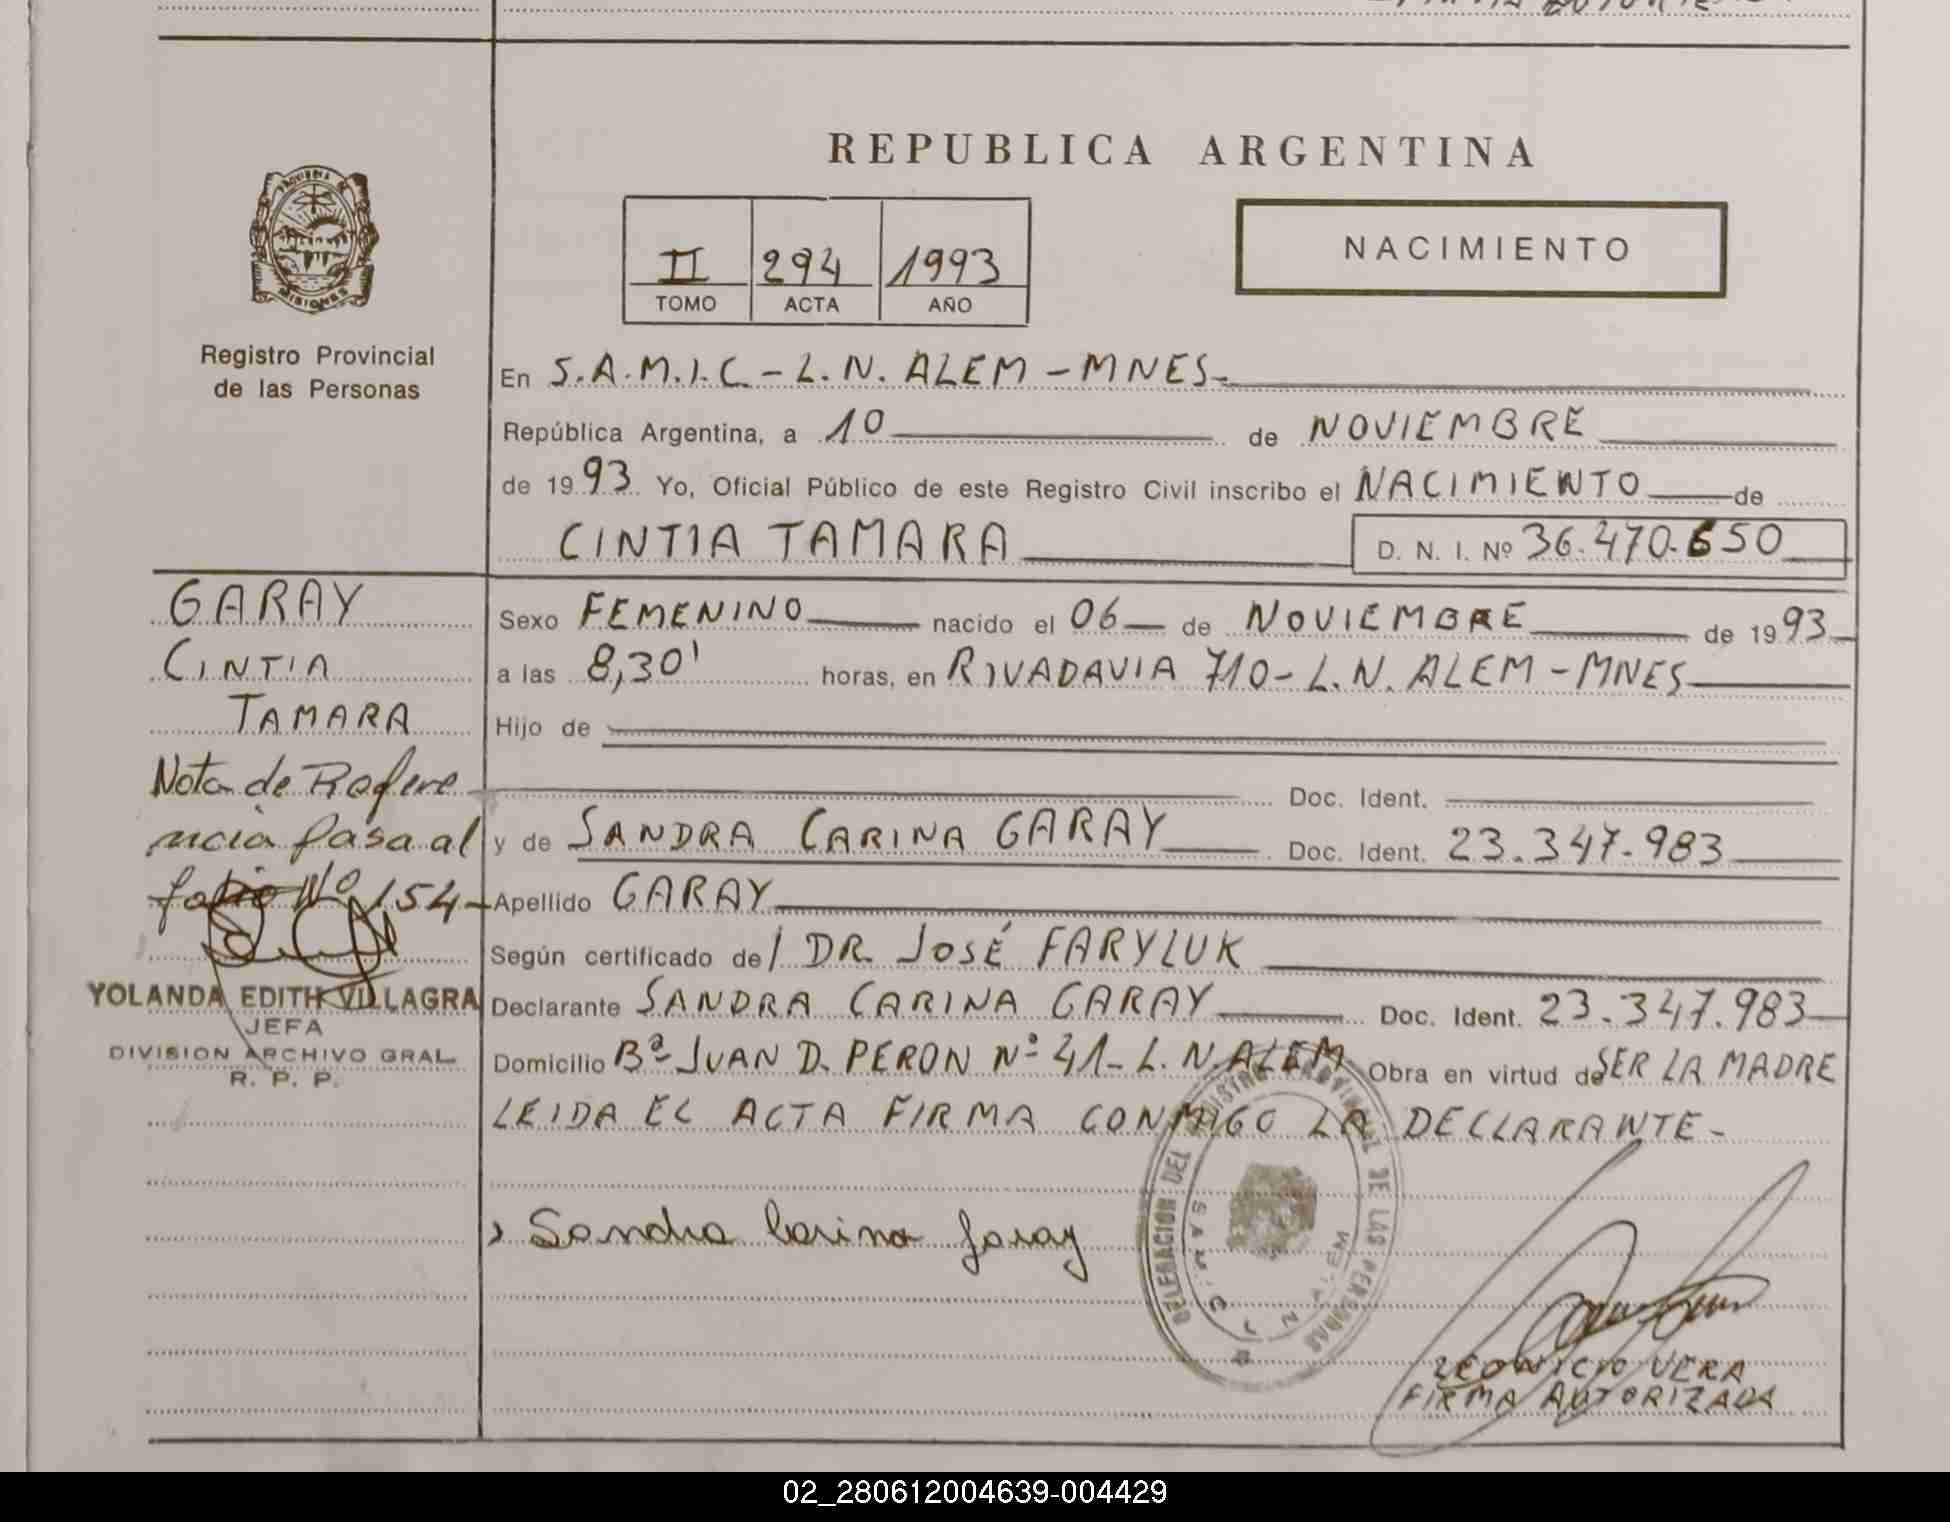 REPUBLICA ARGENTINA
PROVINCIA DE
MISIONES
Registro Provincial
de las Personas
II 294 1993
TOMO ACTA AÑO
NACIMIENTO
En S.A.M.I.C. - L.N. ALEM - MNES-
República Argentina, a 10 de NOVIEMBRE
de 1993 Yo, Oficial Público de este Registro Civil inscribo el NACIMIENTO de
CINTIA TAMARA D. N. I. Nº 36.470.650
GARAY
CINTIA
TAMARA
Nota de Refere
ncia pasa al
folio Nº 154-
YOLANDA EDITH VILLAGRA
JEFA
DIVISION ARCHIVO GRAL.
R. P. P.
Sexo FEMENINO nacido el 06 de NOVIEMBRE de 1993
a las 8,30' horas, en RIVADAVIA 710- L.N. ALEM - MNES
Hijo de
Doc. Ident.
y de SANDRA CARINA GARAY Doc. Ident. 23.347.983
Apellido GARAY
Según certificado de/ DR. JOSÉ FARYLUK
Declarante SANDRA CARINA GARAY Doc. Ident. 23.347.983
Domicilio Bº JUAN D. PERON Nº 41- L.N. ALEM Obra en virtud de SER LA MADRE
LEIDA EL ACTA FIRMA CONMIGO LA DECLARANTE-
Sandra Carina Garay
DELEGACION DEL REGISTRO PROVINCIAL DE LAS PERSONAS
LEONICIO VERA
FIRMA AUTORIZADA
02_280612004639-004429